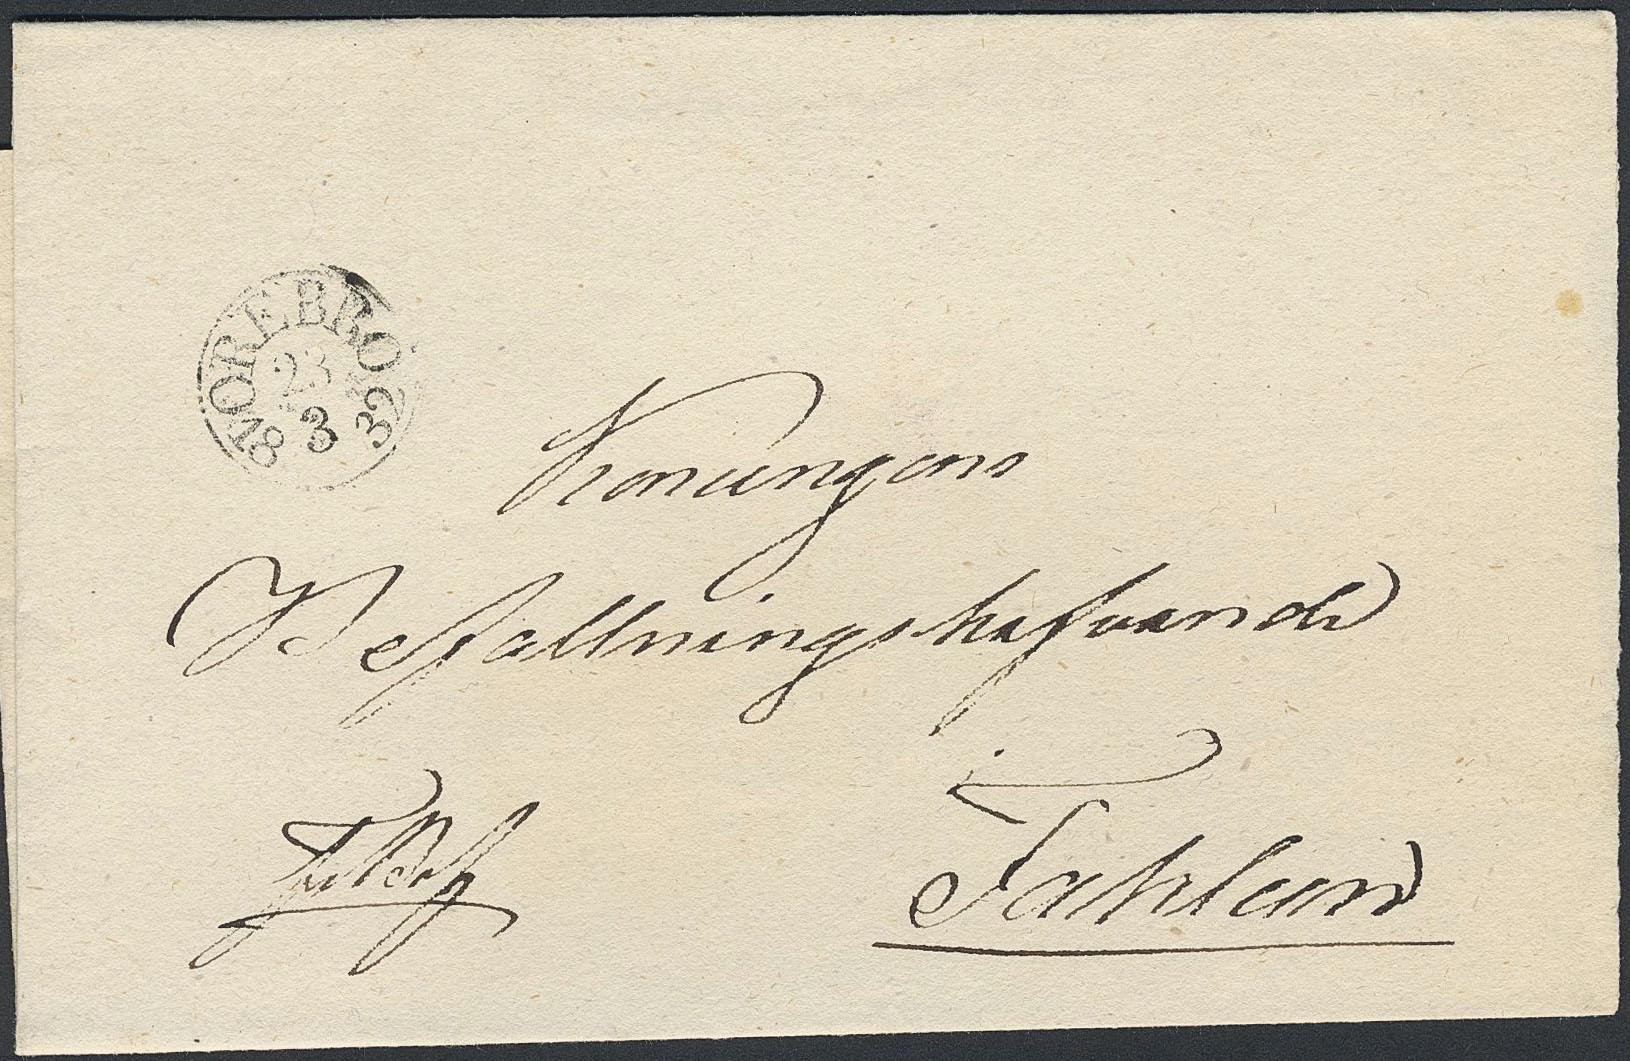 ÖREBRO
23
3
1832
Konungens
Befallningshafvande
i
Fahlun